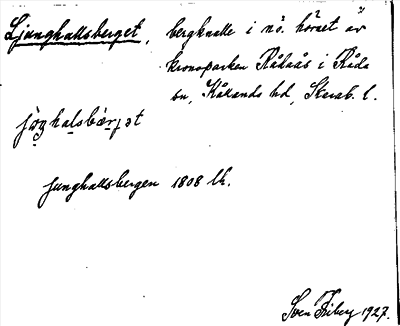 Ljunghallsberget, bergknalle i nö. hörnet av
kronoparken Rådaås i Råda
sn, Kållands hd, Skarab. l.
jungkallsbergen 1808 Lk.
Sven Friberg 1927.